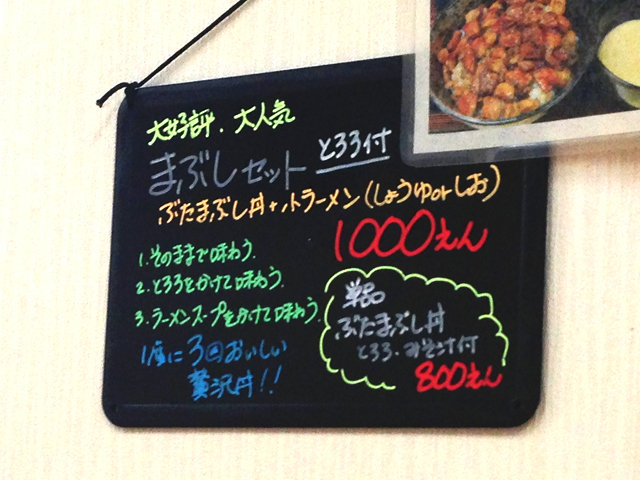 大好評.大人気
まぶしセット とろろ付
ぶたまぶし丼+小ラーメン(しょうゆorしお)
1000えん
1.そのままで味わう.
2.とろろをかけて味わう.
3.ラーメンスープをかけて味わう.
1度に3回おいしい
贅沢丼!!
単品
ぶたまぶし丼
とろろ・みそ汁付
800えん